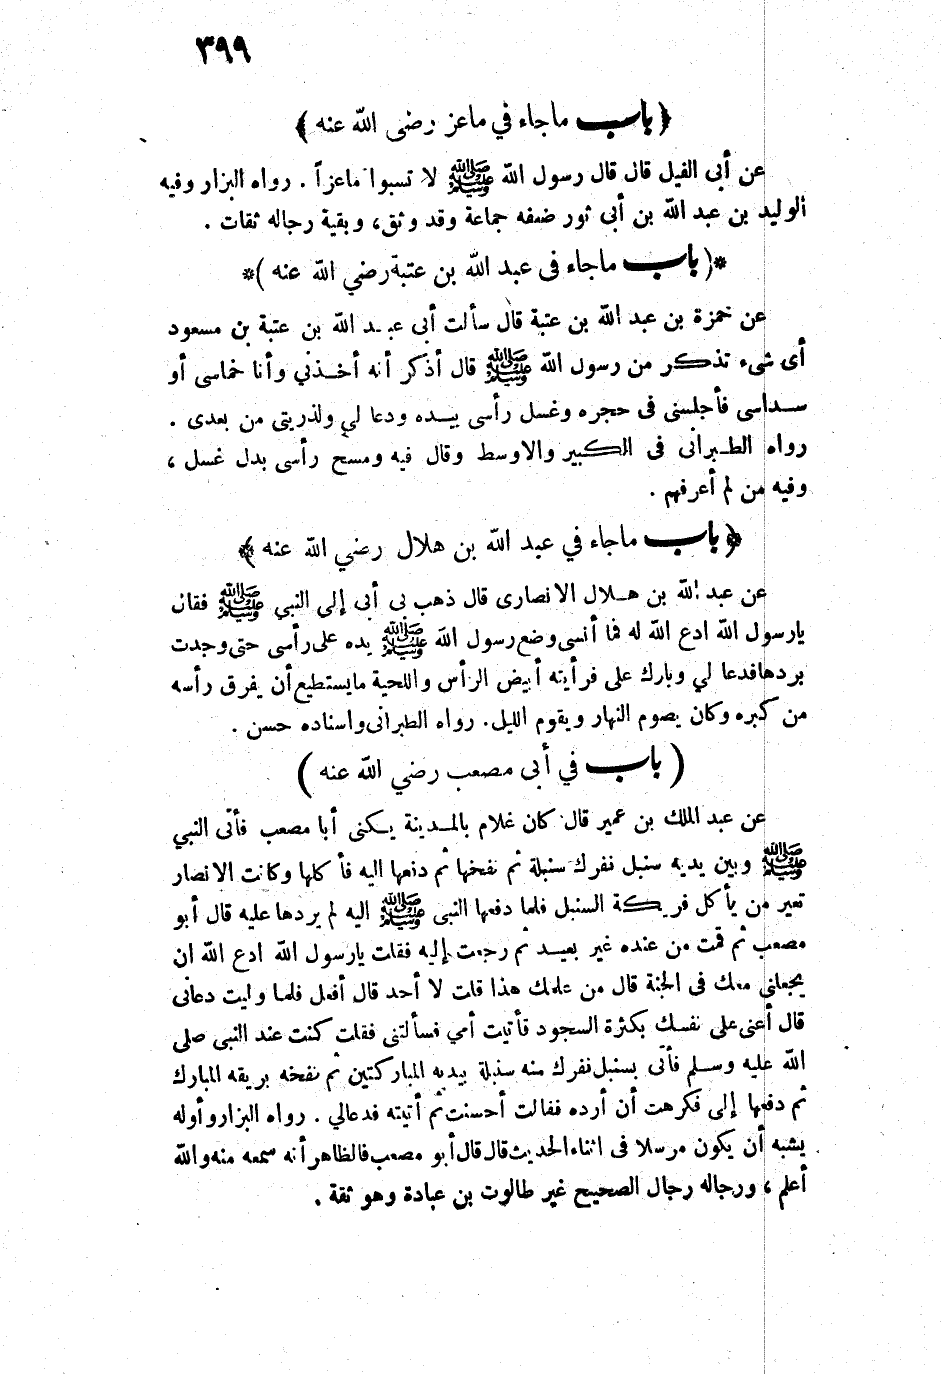 ٣٩٩
﴿ باب ماجاء في ماعز رضى الله عنه ﴾
عن أبى الفيل قال قال رسول الله ﷺ لا تسبوا ماعزاً . رواه البزار وفيه
الوليد بن عبد الله بن أبي ثور ضعفه جماعة وقد وثق، وبقية رجاله ثقات .
*( باب ماجاء فى عبد الله بن عتبة رضي الله عنه )*
عن حمزة بن عبد الله بن عتبة قال سألت أبي عبد الله بن عتبة بن مسعود
أى شىء تذكر من رسول الله ﷺ قال أذكر أنه أخذني وأنا خماسى أو
سداسى فأجلسنى فى حجره وغسل رأسى بيده ودعا لي ولذريتى من بعدى .
رواه الطبرانى فى الكبير والاوسط وقال فيه ومسح رأسى بدل غسل ،
وفيه من لم أعرفهم .
﴿ باب ماجاء في عبد الله بن هلال رضي الله عنه ﴾
عن عبد الله بن هلال الانصارى قال ذهب بى أبى إلى النبي ﷺ فقال
يارسول الله ادع الله له فما أنسى وضع رسول الله ﷺ يده على رأسى حتى وجدت
بردها فدعا لي وبارك على فرأيته أبيض الرأس واللحية مايستطيع أن يفرق رأسه
من كبره وكان يصوم النهار ويقوم الليل. رواه الطبرانى واسناده حسن .
( باب في أبى مصعب رضي الله عنه )
عن عبد الملك بن عمير قال كان غلام بالمدينة يكنى أبا مصعب فأتى النبي
ﷺ وبين يديه سنبل ففرك سنبلة ثم نفخها ثم دفعها اليه فأكلها وكانت الانصار
تعير من يأكل فريكة السنبل فلما دفعها النبى ﷺ اليه لم يردها عليه قال أبو
مصعب ثم قمت من عنده غير بعيد ثم رجعت إليه فقلت يارسول الله ادع الله ان
يجعلني معك فى الجنة قال من علمك هذا قلت لا أحد قال أفعل فلما وليت دعانى
قال أعنى على نفسك بكثرة السجود فأتيت أمي فسألتنى فقلت كنت عند النبى صلى
الله عليه وسلم فأتى بسنبل نفرك منه سنبلة بيديه المباركتين ثم نفخه بريقه المبارك
ثم دفعها إلى فكرهت أن أرده فقالت أحسنت ثم أتيته فدعالي . رواه البزار وأوله
يشبه أن يكون مرسلا فى اثناء الحديث قال قال أبو مصعب فالظاهر أنه سمعه منه والله
أعلم ، ورجاله رجال الصحيح غير طالوت بن عبادة وهو ثقة .